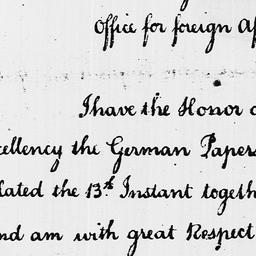 Office for foreign Af
I have the Honor o
cellency the German Papers
dated the 13th Instant togeth
nd am with great Respect